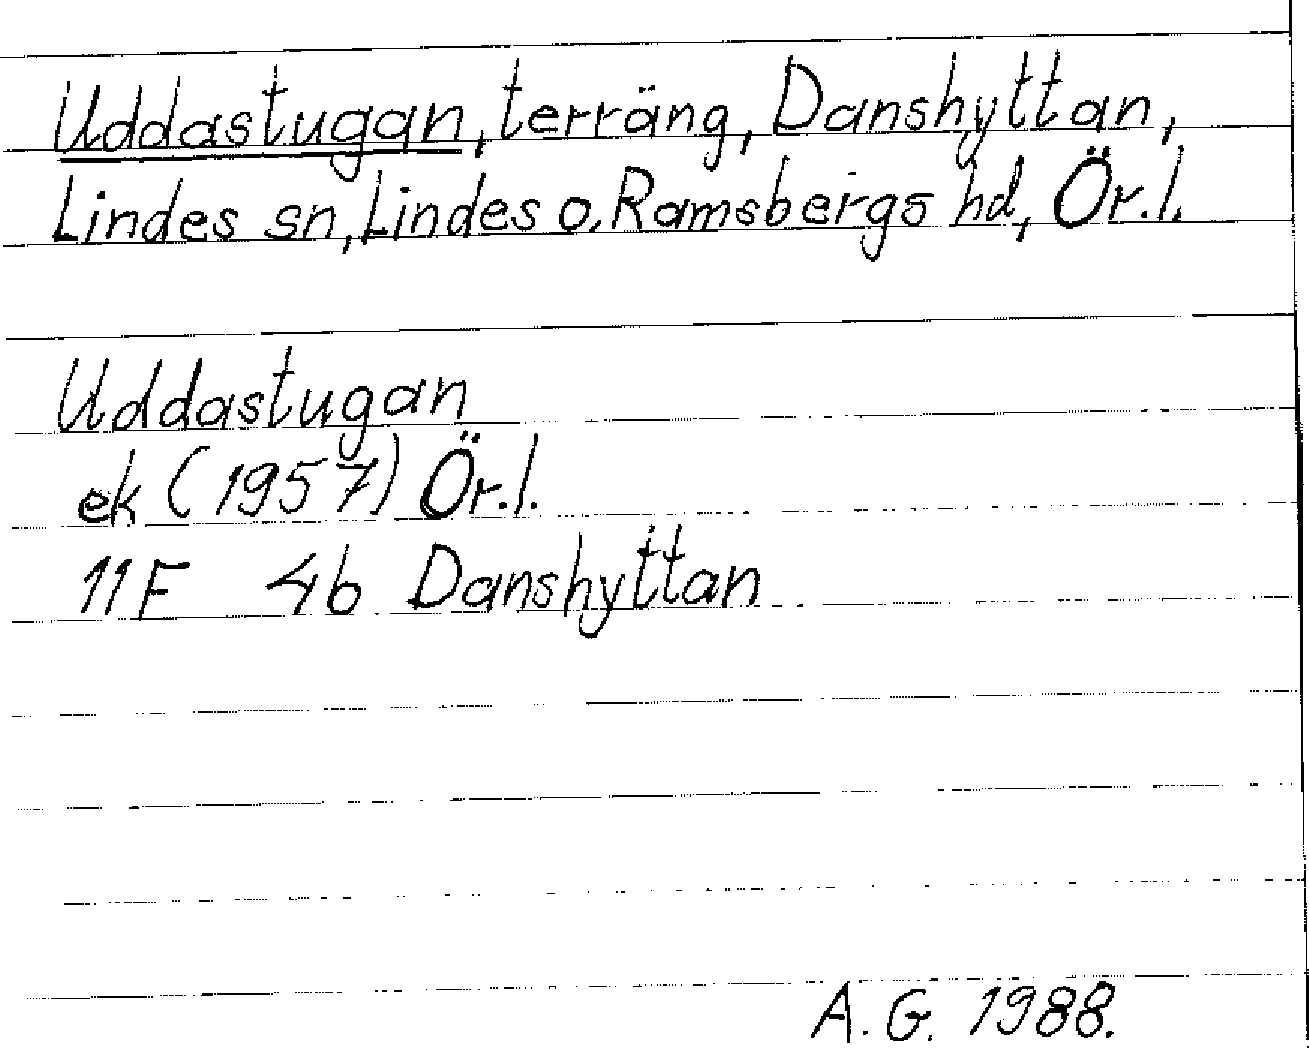 Uddastugan, terräng, Danshyttan,
Lindes sn, Lindes o. Ramsbergs hd, Ör.l.
Uddastugan
ek (1957) Ör.l.
11F 4b Danshyttan
A.G. 1988.